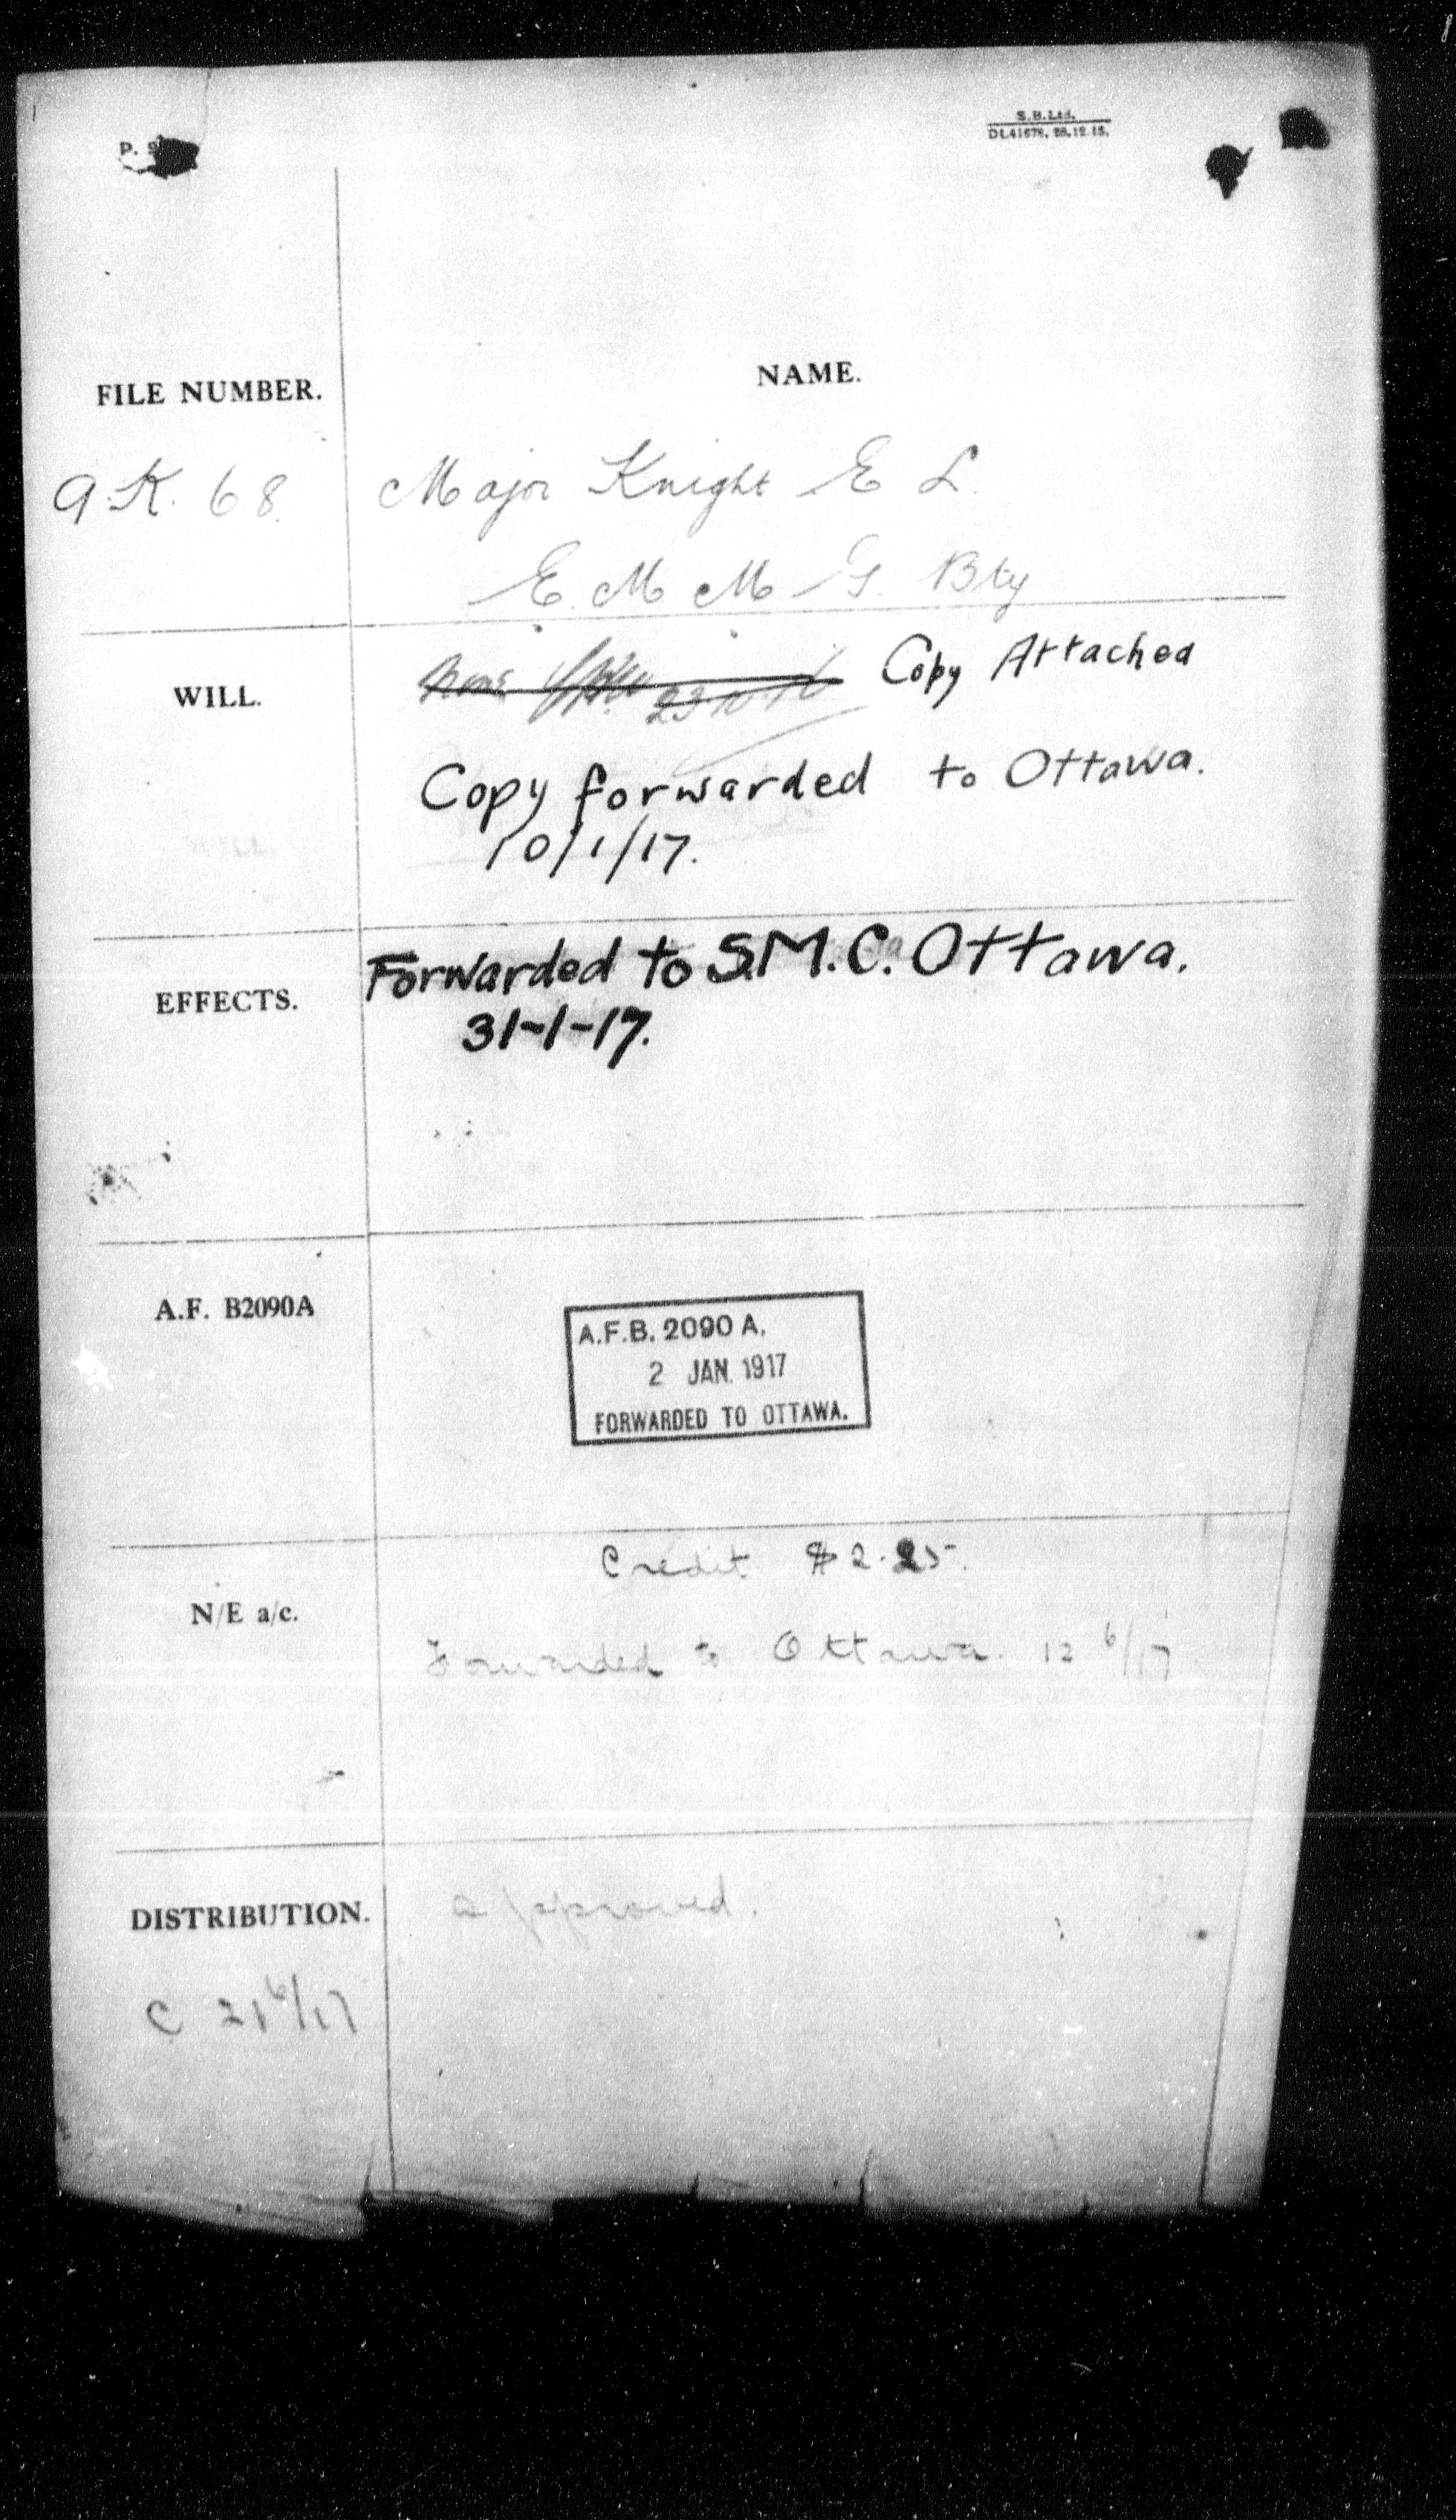 S.B.Ltd.
DL41678. 28.12.15.
P.
FILE NUMBER.
NAME.
9.K. 68.
Major Knight E L.
E. M M G. Bty
WILL.
Copy Attached
Copy forwarded to Ottawa.
10/1/17.
EFFECTS.
Forwarded to S.M.C. Ottawa.
31-1-17.
A.F. B2090A
A.F.B. 2090 A.
2 JAN. 1917
FORWARDED TO OTTAWA.
N/E a/c.
Credit $2.25.
Forwarded to Ottawa. 12 6/17
DISTRIBUTION.
approved.
C 21 6/17